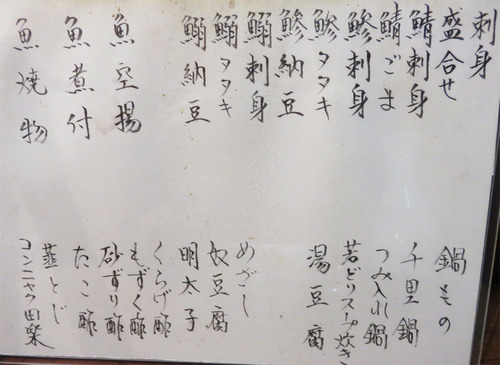 刺身
盛合せ
鯖刺身
鯖ごま
鯵刺身
鯵タタキ
鯵納豆
鰯刺身
鰯タタキ
鰯納豆
魚空揚
魚煮付
魚焼物
鍋もの
千里鍋
つみ入れ鍋
若どりスープ炊き
湯豆腐
めざし
奴豆腐
明太子
くらげ酢
もずく酢
砂ずり酢
たこ酢
韮とじ
コンニャク田楽